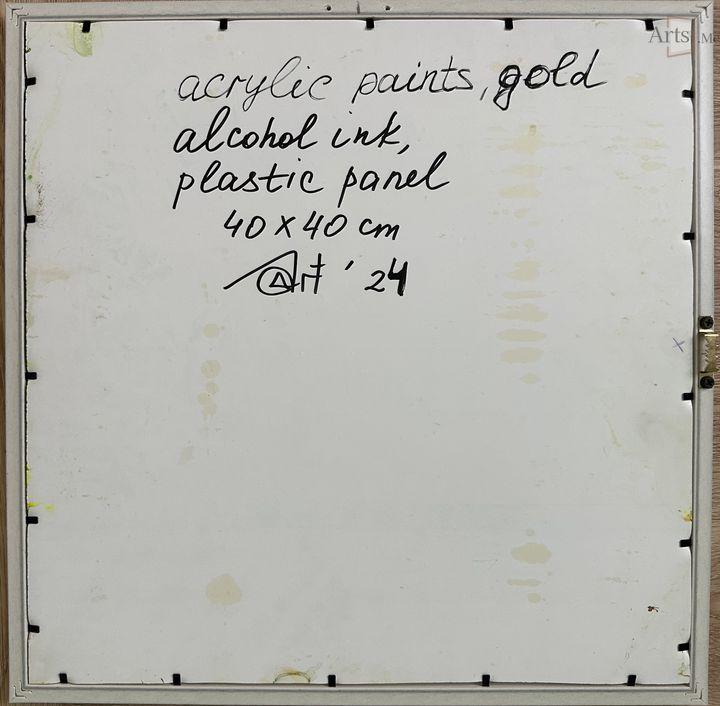 Arts.Me
acrylic paints, gold
alcohol ink,
plastic panel
40 x 40 cm
Art '24